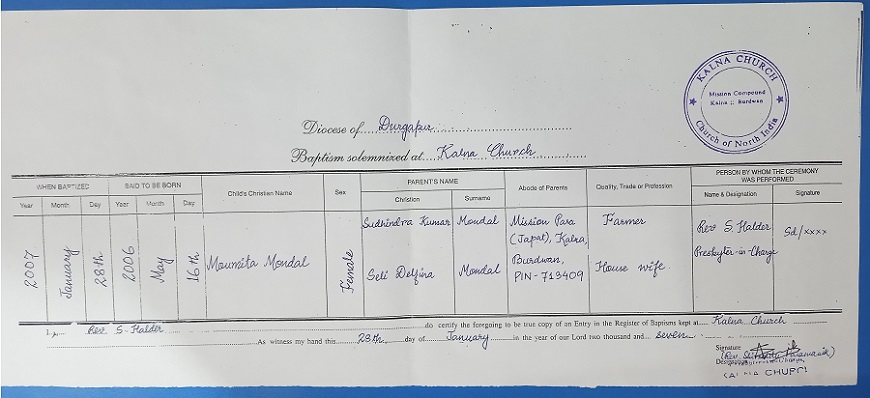 KALNA CHURCH
Mission Compound
Kalna :: Burdwan
Church of North India
Diocese of Durgapur
Baptism solemnized at Kalna Church
WHEN BAPTIZED SAID TO BE BORN Child's Christian Name Sex PARENT'S NAME Abode of Parents Quality, Trade or Profession PERSON BY WHOM THE CEREMONY WAS PERFORMED
Year Month Day Year Month Day Christian Surname Name & Designation Signature
2007 January 28th 2006 May 16th Moumita Mondal Female
Sudhindra Kumar Mondal
Seli Delfina Mondal
Mission Para
(Japat), Kalna,
Burdwan,
PIN-713409
Farmer
House wife.
Rev S Halder
Presbyter-in-Charge
Sd/xxxx
I, Rev. S. Halder do certify the foregoing to be true copy of an Entry in the Register of Baptisms kept at Kalna Church
As witness my hand this 28th day of January in the year of our Lord two thousand and seven
Signature
(Rev.
Designation
CHURCH